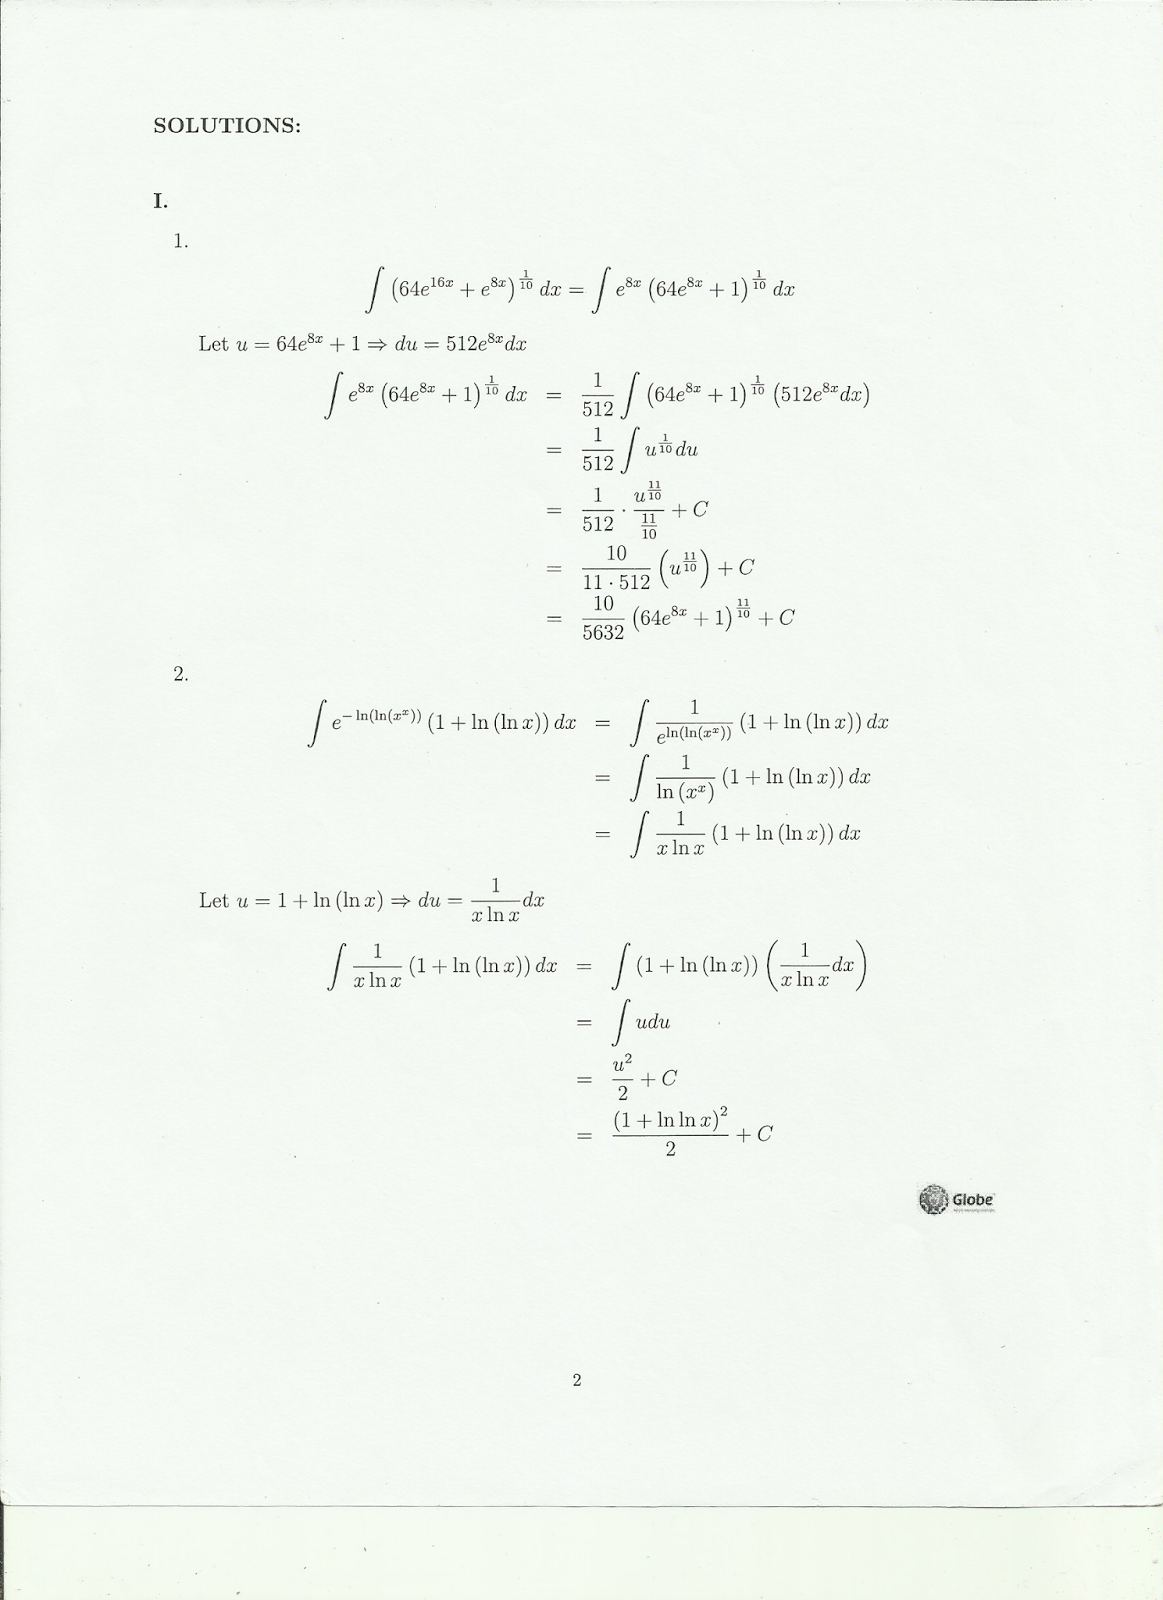 SOLUTIONS:
I.
1.
∫ (64e^{16x} + e^{8x})^{1/10} dx = ∫ e^{8x} (64e^{8x} + 1)^{1/10} dx
Let u = 64e^{8x} + 1 ⇒ du = 512e^{8x}dx
∫ e^{8x} (64e^{8x} + 1)^{1/10} dx = \frac{1}{512} ∫ (64e^{8x} + 1)^{1/10} (512e^{8x}dx)
= \frac{1}{512} ∫ u^{1/10} du
= \frac{1}{512} · \frac{u^{11/10}}{\frac{11}{10}} + C
= \frac{10}{11 · 512} (u^{11/10}) + C
= \frac{10}{5632} (64e^{8x} + 1)^{11/10} + C
2.
∫ e^{− ln(ln(x^x))} (1 + ln (ln x)) dx = ∫ \frac{1}{e^{ln(ln(x^x))}} (1 + ln (ln x)) dx
= ∫ \frac{1}{ln (x^x)} (1 + ln (ln x)) dx
= ∫ \frac{1}{x ln x} (1 + ln (ln x)) dx
Let u = 1 + ln (ln x) ⇒ du = \frac{1}{x ln x} dx
∫ \frac{1}{x ln x} (1 + ln (ln x)) dx = ∫ (1 + ln (ln x)) (\frac{1}{x ln x} dx)
= ∫ udu
= \frac{u^2}{2} + C
= \frac{(1 + ln ln x)^2}{2} + C
Globe
2